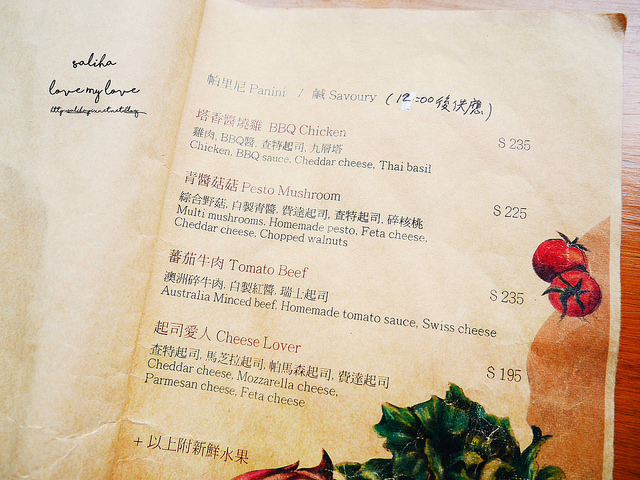 saliha
love my love
帕里尼 Panini / 鹹 Savoury (12:00後供應)
塔香醬燒雞 BBQ Chicken
$ 235
雞肉, BBQ醬, 查特起司, 九層塔
Chicken, BBQ sauce, Cheddar cheese, Thai basil
青醬菇菇 Pesto Mushroom
$ 225
綜合野菇, 自製青醬, 費達起司, 查特起司, 碎核桃
Multi mushrooms, Homemade pesto, Feta cheese,
Cheddar cheese, Chopped walnuts
蕃茄牛肉 Tomato Beef
$ 235
澳洲碎牛肉, 自製紅醬, 瑞士起司
Australia Minced beef, Homemade tomato sauce, Swiss cheese
起司愛人 Cheese Lover
$ 195
查特起司, 馬芝拉起司, 帕馬森起司, 費達起司
Cheddar cheese, Mozzarella cheese,
Parmesan cheese, Feta cheese
+ 以上附新鮮水果